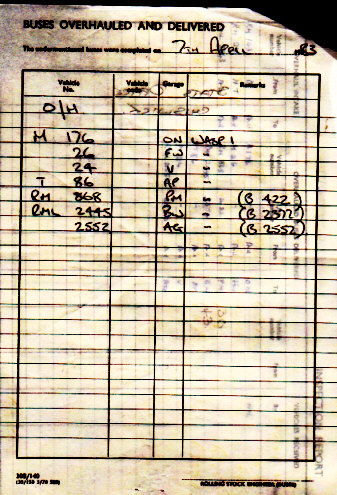 BUSES OVERHAULED AND DELIVERED
The undermentioned buses were completed on 7TH APRIL 1983
Vehicle No. Vehicle code Garage Remarks
O/H
M 176 ON WASP 1
26 FW
24 V
T 86 AP
RM 868 PM (B 422)
RML 2445 BW (B 2372)
2552 AG – (B 2552)
308/140
ROLLING STOCK ENGINEER (BUSES)